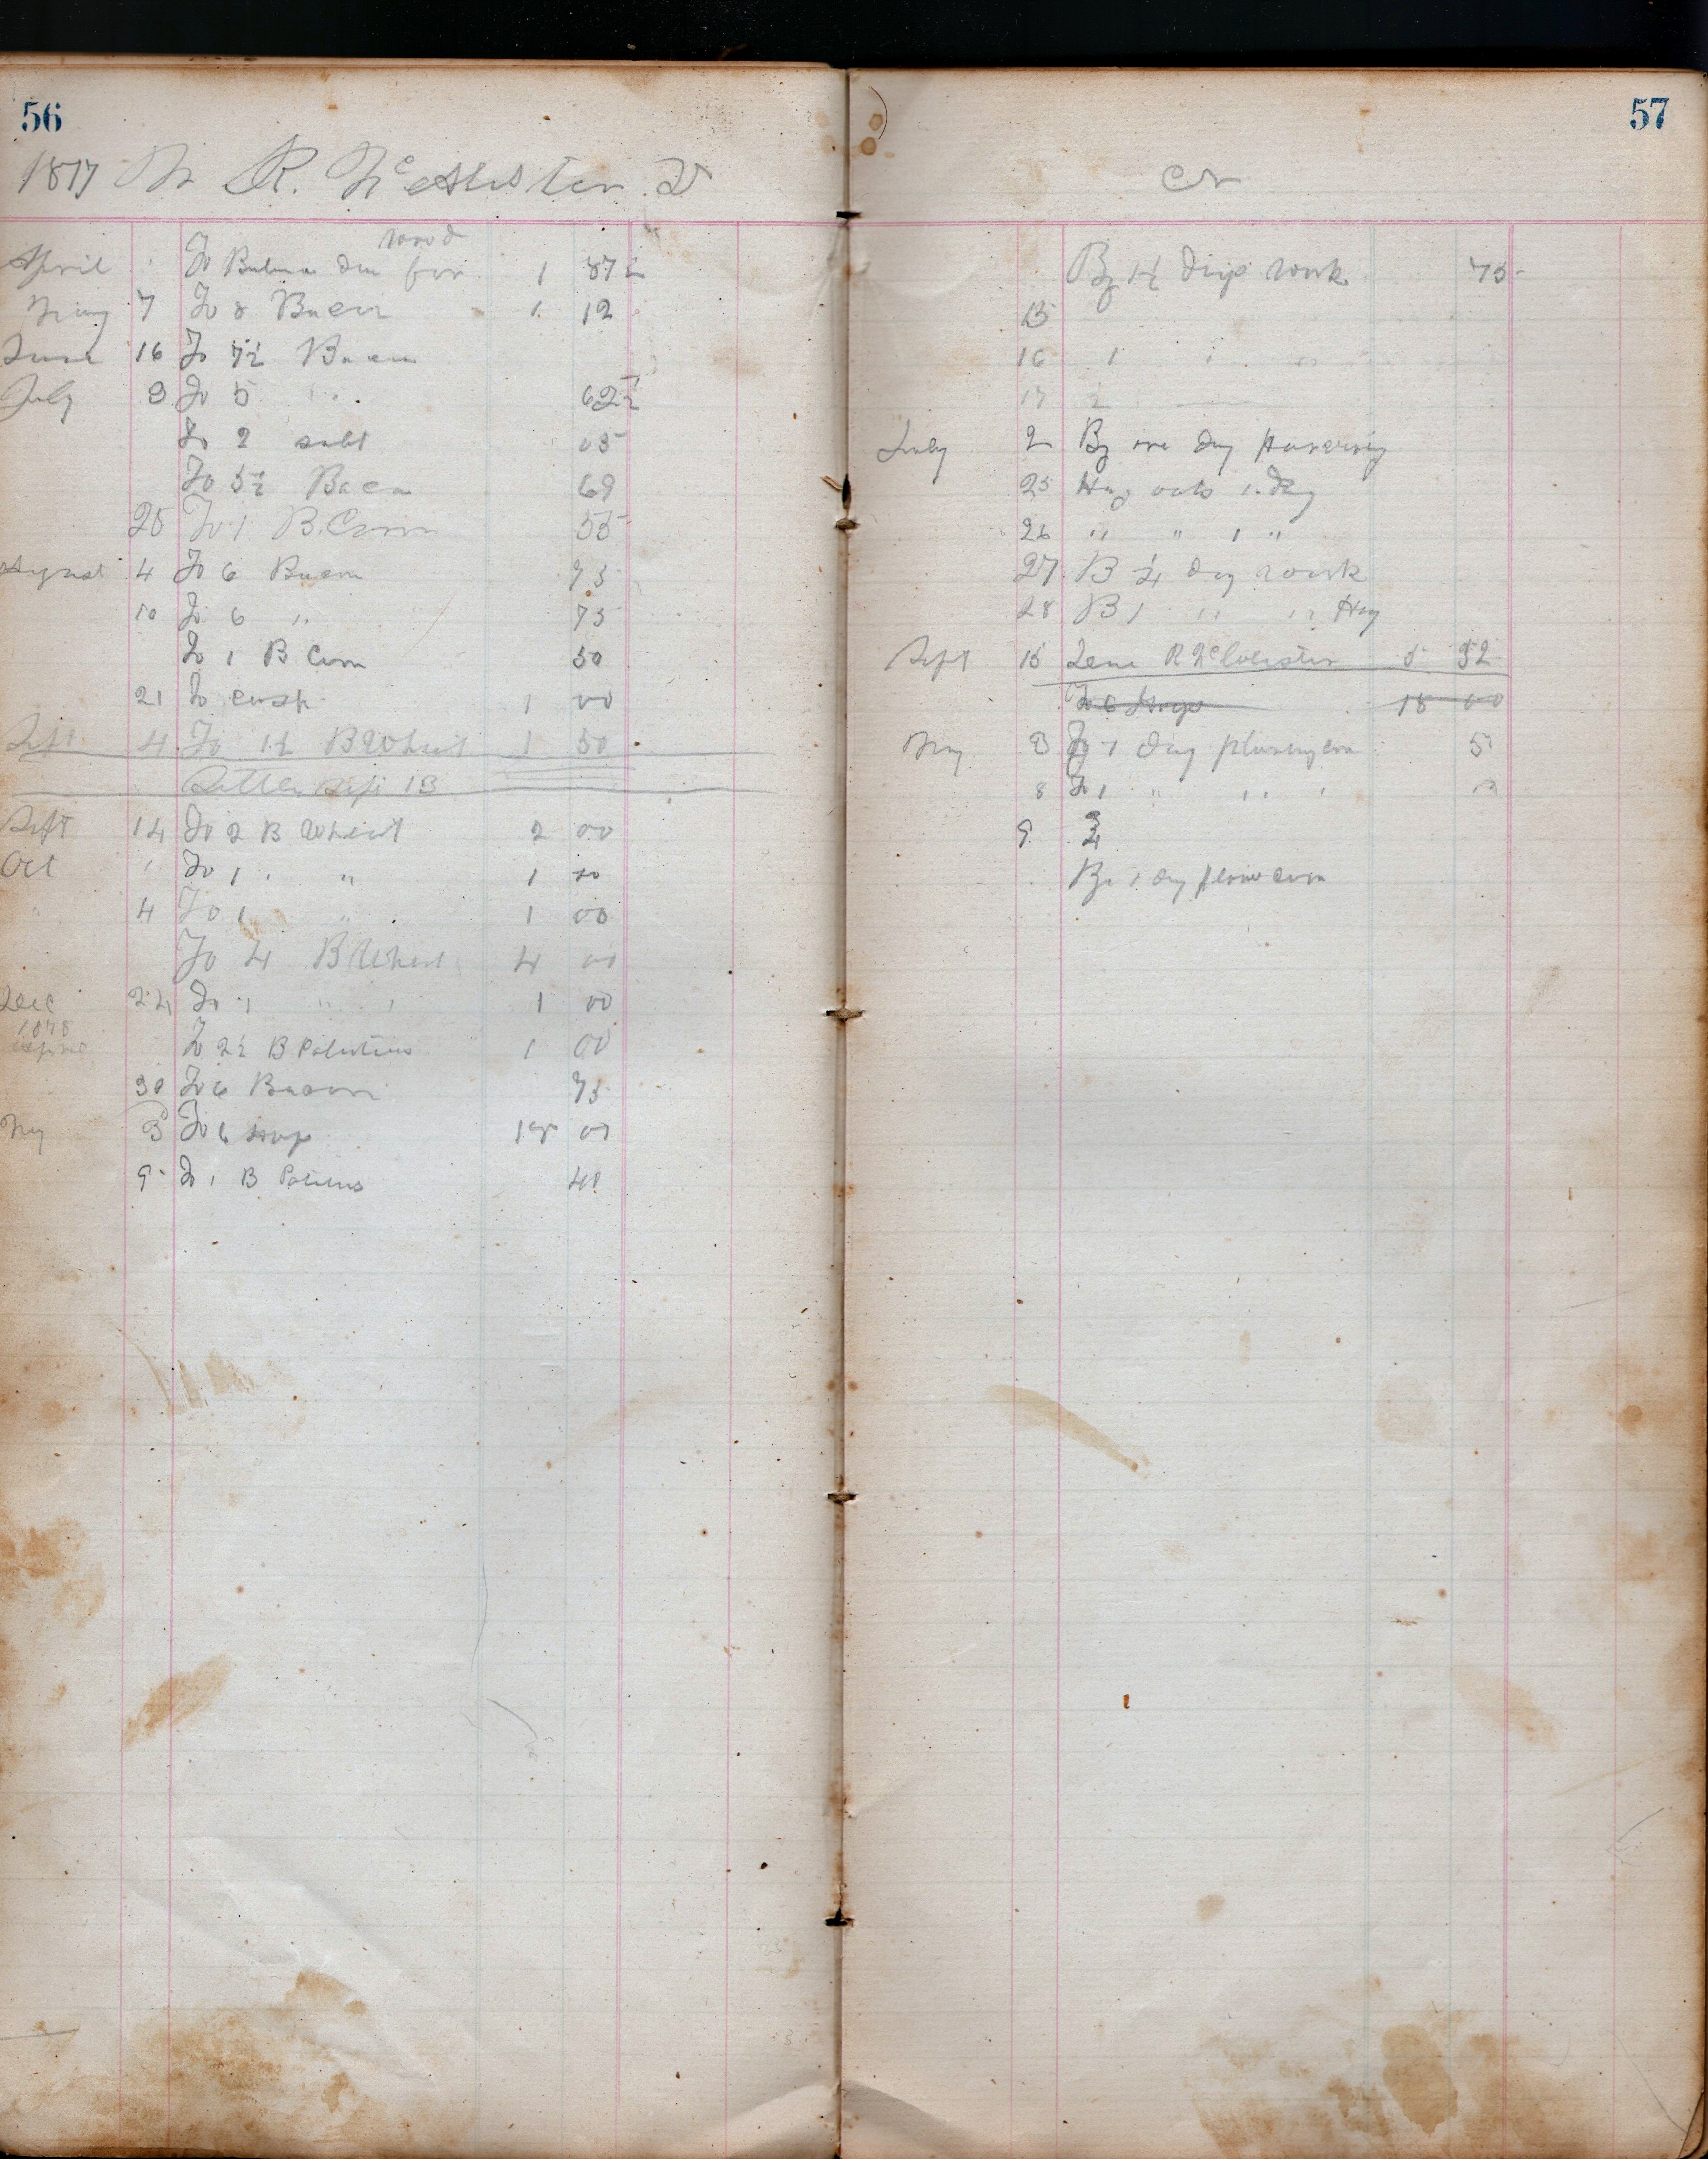 56
1877 Mr R. McAlister Dr
wood
April To Balance due for 1 87½
May 7 To 8 Bacon 1 12
June 16 To 7½ Bacon
July 3 To 5 " 62½
To 2 salt 05
To 5½ Bacon 69
25 To 1 B. Corn 55
August 4 To 6 Bacon 75
10 To 6 " 75
To 1 B Corn 50
21 To cash 1 00
Sept 4 To 1½ B Wheat 1 50
Sept 13
Sept 14 To 2 B Wheat 2 00
Oct 1 To 1 " " 1 00
" 4 To 1 " 1 00
To 4 B Wheat 4 00
Dec 24 To 1 " " 1 00
1878
April To 2½ B Potatoes 1 00
30 To 6 Bacon 75
May 3 To 6 Hogs 18 00
9 To 1 B Potatoes 40
57
Cr
By 1½ days work 75
15
16 1 " "
17 ½
July 2 By one day
25 oats 1 day
26 " " 1 "
27 B ¼ day work
28 B 1 " " Hay
Sept 15 Due R McAlister 5 52
To 6 Hogs 18 00
May 3 To 1 day 5
8 To 1 " " "
9 ¾
By 1 day plow corn